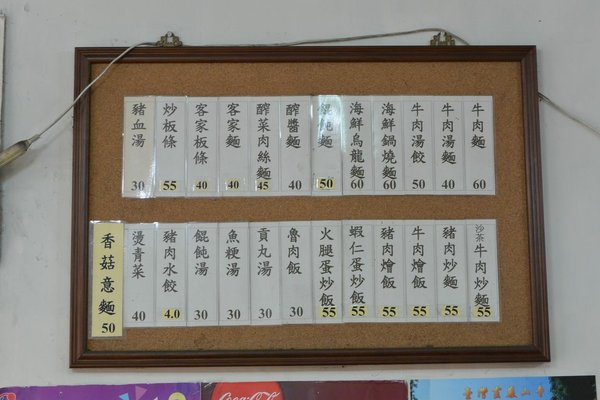 牛肉麵 60
牛肉湯麵 40
牛肉湯餃 50
海鮮鍋燒麵 60
海鮮烏龍麵 60
餛飩麵 50
醡醬麵 40
醡菜肉絲麵 45
客家麵 40
客家板條 40
炒板條 55
豬血湯 30
沙茶牛肉炒麵 55
豬肉炒麵 55
牛肉燴飯 55
豬肉燴飯 55
蝦仁蛋炒飯 55
火腿蛋炒飯 55
魯肉飯 30
貢丸湯 30
魚粳湯 30
餛飩湯 30
豬肉水餃 4.0
燙青菜 40
香菇意麵 50
Coca-Cola